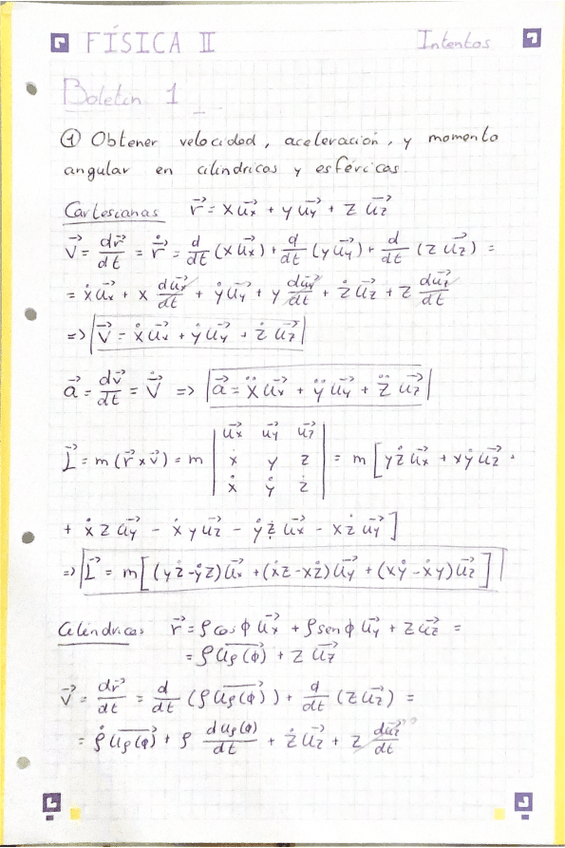 FÍSICA II Intentos
Boletín 1
① Obtener velocidad, aceleración, y momento
angular en cilíndricas y esféricas.
Cartesianas r⃗ = x u⃗x + y u⃗y + z u⃗z
v⃗ = dr⃗/dt = ṙ⃗ = d/dt (x u⃗x) + d/dt (y u⃗y) + d/dt (z u⃗z) =
= ẋ u⃗x + x du⃗x/dt + ẏ u⃗y + y du⃗y/dt + ż u⃗z + z du⃗z/dt
=> v⃗ = ẋ u⃗x + ẏ u⃗y + ż u⃗z
a⃗ = dv⃗/dt = v̇⃗ => a⃗ = ẍ u⃗x + ÿ u⃗y + z̈ u⃗z
L⃗ = m (r⃗ x v⃗) = m | u⃗x u⃗y u⃗z ; x y z ; ẋ ẏ ż | = m [ y ż u⃗x + x ẏ u⃗z +
+ ẋ z u⃗y − ẋ y u⃗z − ẏ z u⃗x − x ż u⃗y ]
=> L⃗ = m [ (y ż − ẏ z) u⃗x + (ẋ z − x ż) u⃗y + (x ẏ − ẋ y) u⃗z ]
Cilíndricas r⃗ = ρ cos ϕ u⃗x + ρ sen ϕ u⃗y + z u⃗z =
= ρ u⃗ρ(ϕ) + z u⃗z
v⃗ = dr⃗/dt = d/dt (ρ u⃗ρ(ϕ)) + d/dt (z u⃗z) =
= ρ̇ u⃗ρ(ϕ) + ρ duρ(ϕ)/dt + ż u⃗z + z du⃗z/dt